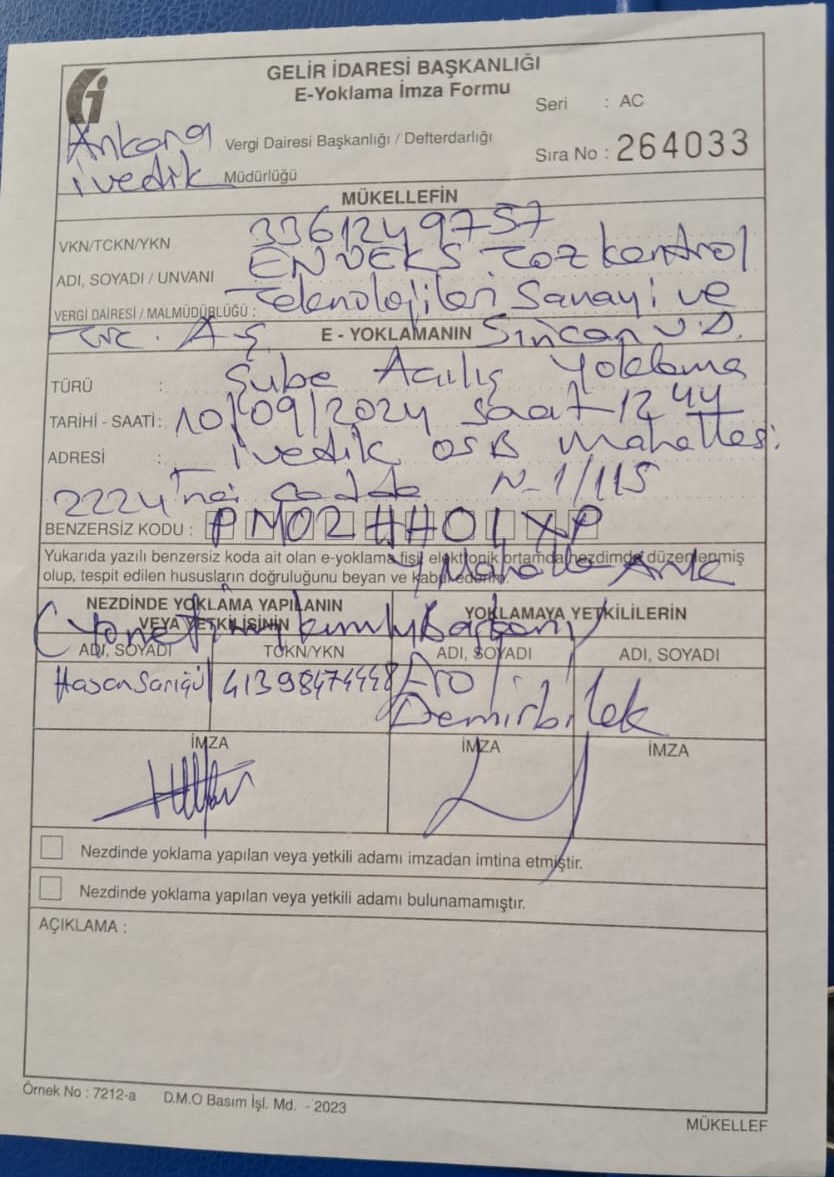 GELİR İDARESİ BAŞKANLIĞI
E-Yoklama İmza Formu
Seri : AC
Ankara Vergi Dairesi Başkanlığı / Defterdarlığı
Sıra No : 264033
ivedik Müdürlüğü
MÜKELLEFİN
VKN/TCKN/YKN 3361249757
ADI, SOYADI / UNVANI ENVEKS Toz kontrol
VERGİ DAİRESİ / MALMÜDÜRLÜĞÜ : Teknolojileri Sanayi ve
Tic. A.Ş. E - YOKLAMANIN Sincan V.D.
TÜRÜ : Şube Açılış Yoklama
TARİHİ - SAATİ : 10/09/2024 saat 12 44
ADRESİ : ivedik OSB Mahallesi
2224'nci Cadde N-1/115
BENZERSİZ KODU : PM02HHO1XP
Yukarıda yazılı benzersiz koda ait olan e-yoklama fişi elektronik ortamda nezdimde düzenlenmiş
olup, tespit edilen hususların doğruluğunu beyan ve kabul ederim.
NEZDİNDE YOKLAMA YAPILANIN
VEYA YETKİLİSİNİN
YOKLAMAYA YETKİLİLERİN
(Yönetim kurulu Başkanı)
ADI, SOYADI TCKN/YKN ADI, SOYADI ADI, SOYADI
Hasan Sarıgül 41398474448
Demirbilek
İMZA İMZA İMZA
Nezdinde yoklama yapılan veya yetkili adamı imzadan imtina etmiştir.
Nezdinde yoklama yapılan veya yetkili adamı bulunamamıştır.
AÇIKLAMA :
Örnek No : 7212-a D.M.O Basım İşl. Md. - 2023
MÜKELLEF